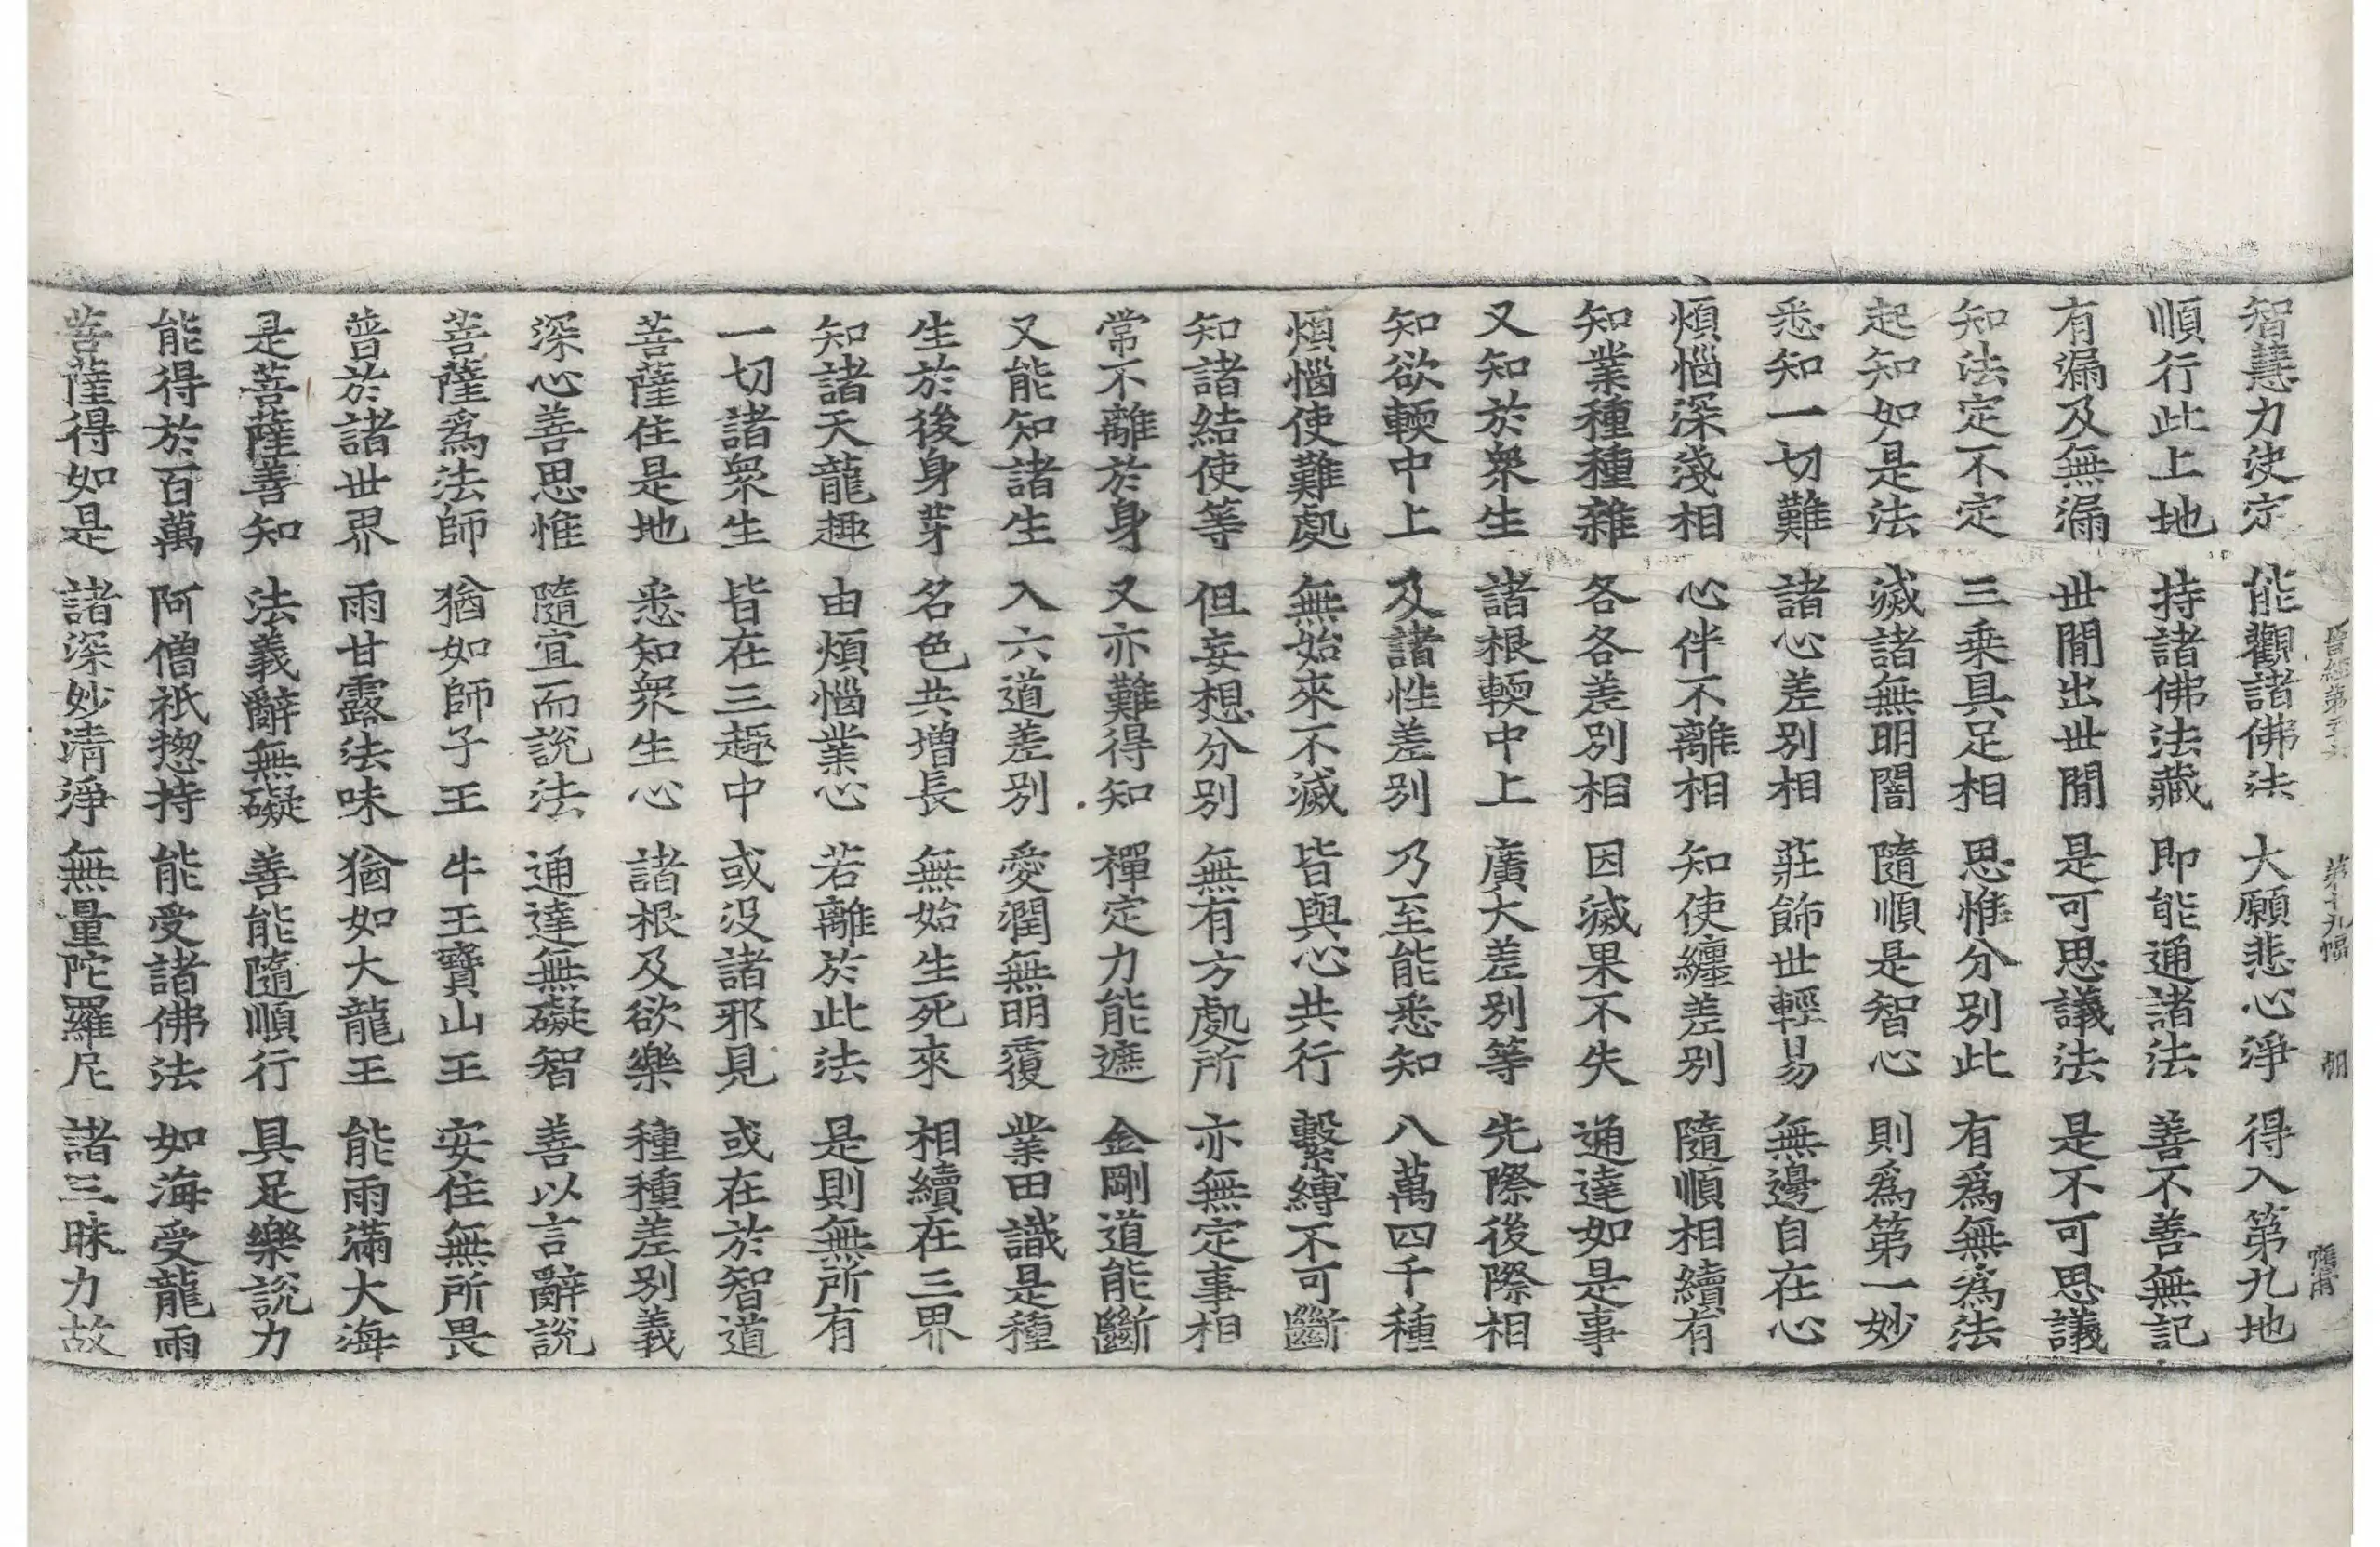 晉經第二十六 第十九幅
智慧力決定 能觀諸佛法 大願悲心淨 得入第九地
順行此上地 持諸佛法藏 即能通諸法 善不善無記
有漏及無漏 世閒出世閒 是可思議法 是不可思議
知法定不定 三乗具足相 思惟分別此 有爲無爲法
起知如是法 滅諸無明闇 隨順是智心 則爲第一妙
悉知一切難 諸心差別相 莊飾世輕易 無邊自在心
煩惱深淺相 心伴不離相 知使纏差別 隨順相續有
知業種種雜 各各差別相 因滅果不失 通達如是事
又知於衆生 諸根輭中上 廣大差別等 先際後際相
知欲輭中上 及諸性差別 乃至能悉知 八萬四千種
煩惱使難處 無始來不滅 皆與心共行 繫縛不可斷
知諸結使等 但妄想分別 無有方處所 亦無定事相
常不離於身 又亦難得知 禪定力能遮 金剛道能斷
又能知諸生 入六道差別 愛潤無明覆 業田識是種
生於後身芽 名色共增長 無始生死來 相續在三界
知諸天龍趣 由煩惱業心 若離於此法 是則無所有
一切諸衆生 皆在三趣中 或没諸邪見 或在於智道
菩薩住是地 悉知衆生心 諸根及欲樂 種種差別義
深心善思惟 隨宜而說法 通達無礙智 善以言辭說
菩薩爲法師 猶如師子王 牛王寶山王 安住無所畏
普於諸世界 雨甘露法味 猶如大龍王 能雨滿大海
是菩薩善知 法義辭無礙 善能隨順行 具足樂說力
能得於百萬 阿僧祇揔持 能受諸佛法 如海受龍雨
菩薩得如是 諸深妙清淨 無量陀羅尼 諸三昧力故